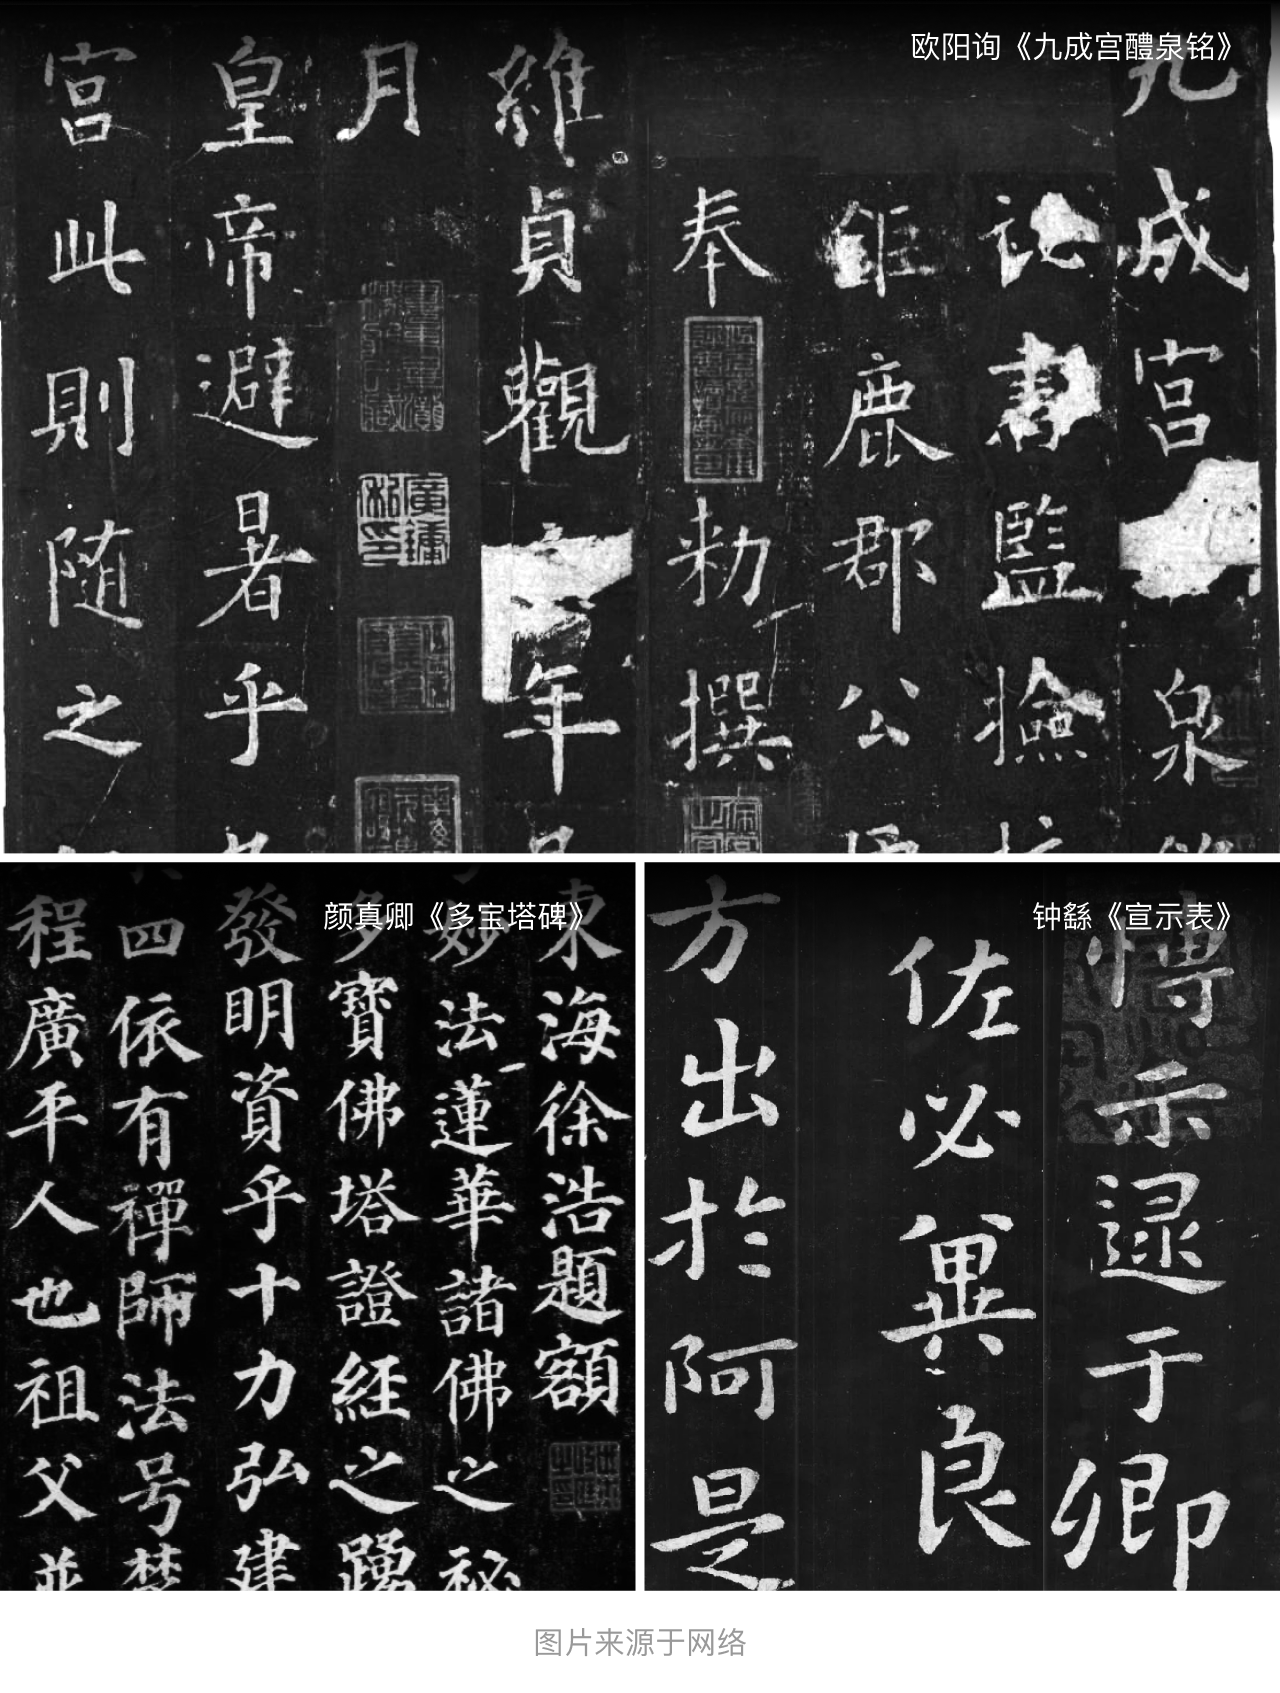 欧阳询《九成宫醴泉铭》
九成宮泉
祕書監撿
鉅鹿郡公
奉勑撰
維貞觀年
月
皇帝避暑乎
宮此則随之
颜真卿《多宝塔碑》
東海徐浩題額
妙法蓮華諸佛之秘
多寶佛塔證經之踴
發明資乎十力弘建
四依有禪師法号楚
程廣平人也祖父並
钟繇《宣示表》
愽示逮于卿
佐必冀良
方出於阿是
图片来源于网络